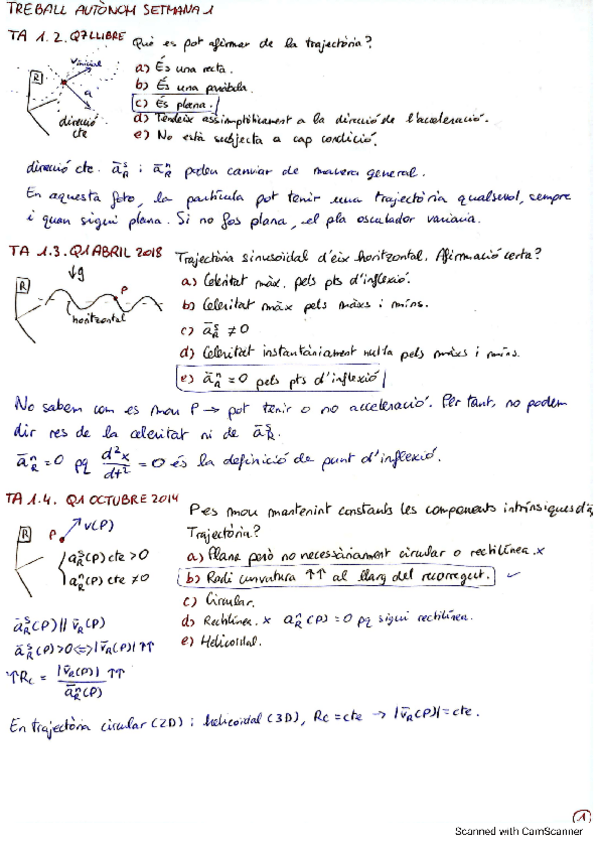 TREBALL AUTÒNOM SETMANA 1
TA 1.2. Q7 LLIBRE Què es pot afirmar de la trajectòria?
R
vinicial
a
direcció
cte
a) És una recta.
b) És una paràbola.
c) És plana.
d) Tendeix assimptòticament a la direcció de l'acceleració.
e) No està subjecta a cap condició.
direcció cte. āˢR i āⁿR poden canviar de manera general.
En aquesta foto, la partícula pot tenir una trajectòria qualsevol, sempre
i quan sigui plana. Si no fos plana, el pla osculador variaria.
TA 1.3. Q1 ABRIL 2018 Trajectòria sinusoïdal d'eix horitzontal. Afirmació certa?
↓g
R
P
horitzontal
a) Celeritat màx. pels pts d'inflexió.
b) Celeritat màx pels màxs i míns.
c) āˢR ≠ 0
d) Celeritat instantàniament nul·la pels màxs i míns.
e) āⁿR = 0 pels pts d'inflexió
No sabem com es mou P → pot tenir o no acceleració. Per tant, no podem
dir res de la celeritat ni de āˢR.
āⁿR = 0 pq d²x/dt² = 0 és la definició de punt d'inflexió.
TA 1.4. Q1 OCTUBRE 2014 P es mou mantenint constants les components intrínsiques d'a
Trajectòria?
R
P
v(P)
aˢR(P) cte > 0
aⁿR(P) cte ≠ 0
a) Plana però no necessàriament circular o rectilínea. x
b) Radi curvatura ↑↑ al llarg del recorregut. ✓
c) Circular.
d) Rectilínea. x aⁿR(P) = 0 pq sigui rectilínea.
e) Helicoidal.
āˢR(P) || v̄R(P)
āˢR(P) > 0 <=> |v̄R(P)| ↑↑
↑Rc = |v̄R(P)| ↑↑ / āⁿR(P)
En trajectòria circular (2D) i helicoidal (3D), Rc = cte → |v̄R(P)| = cte.
1
Scanned with CamScanner